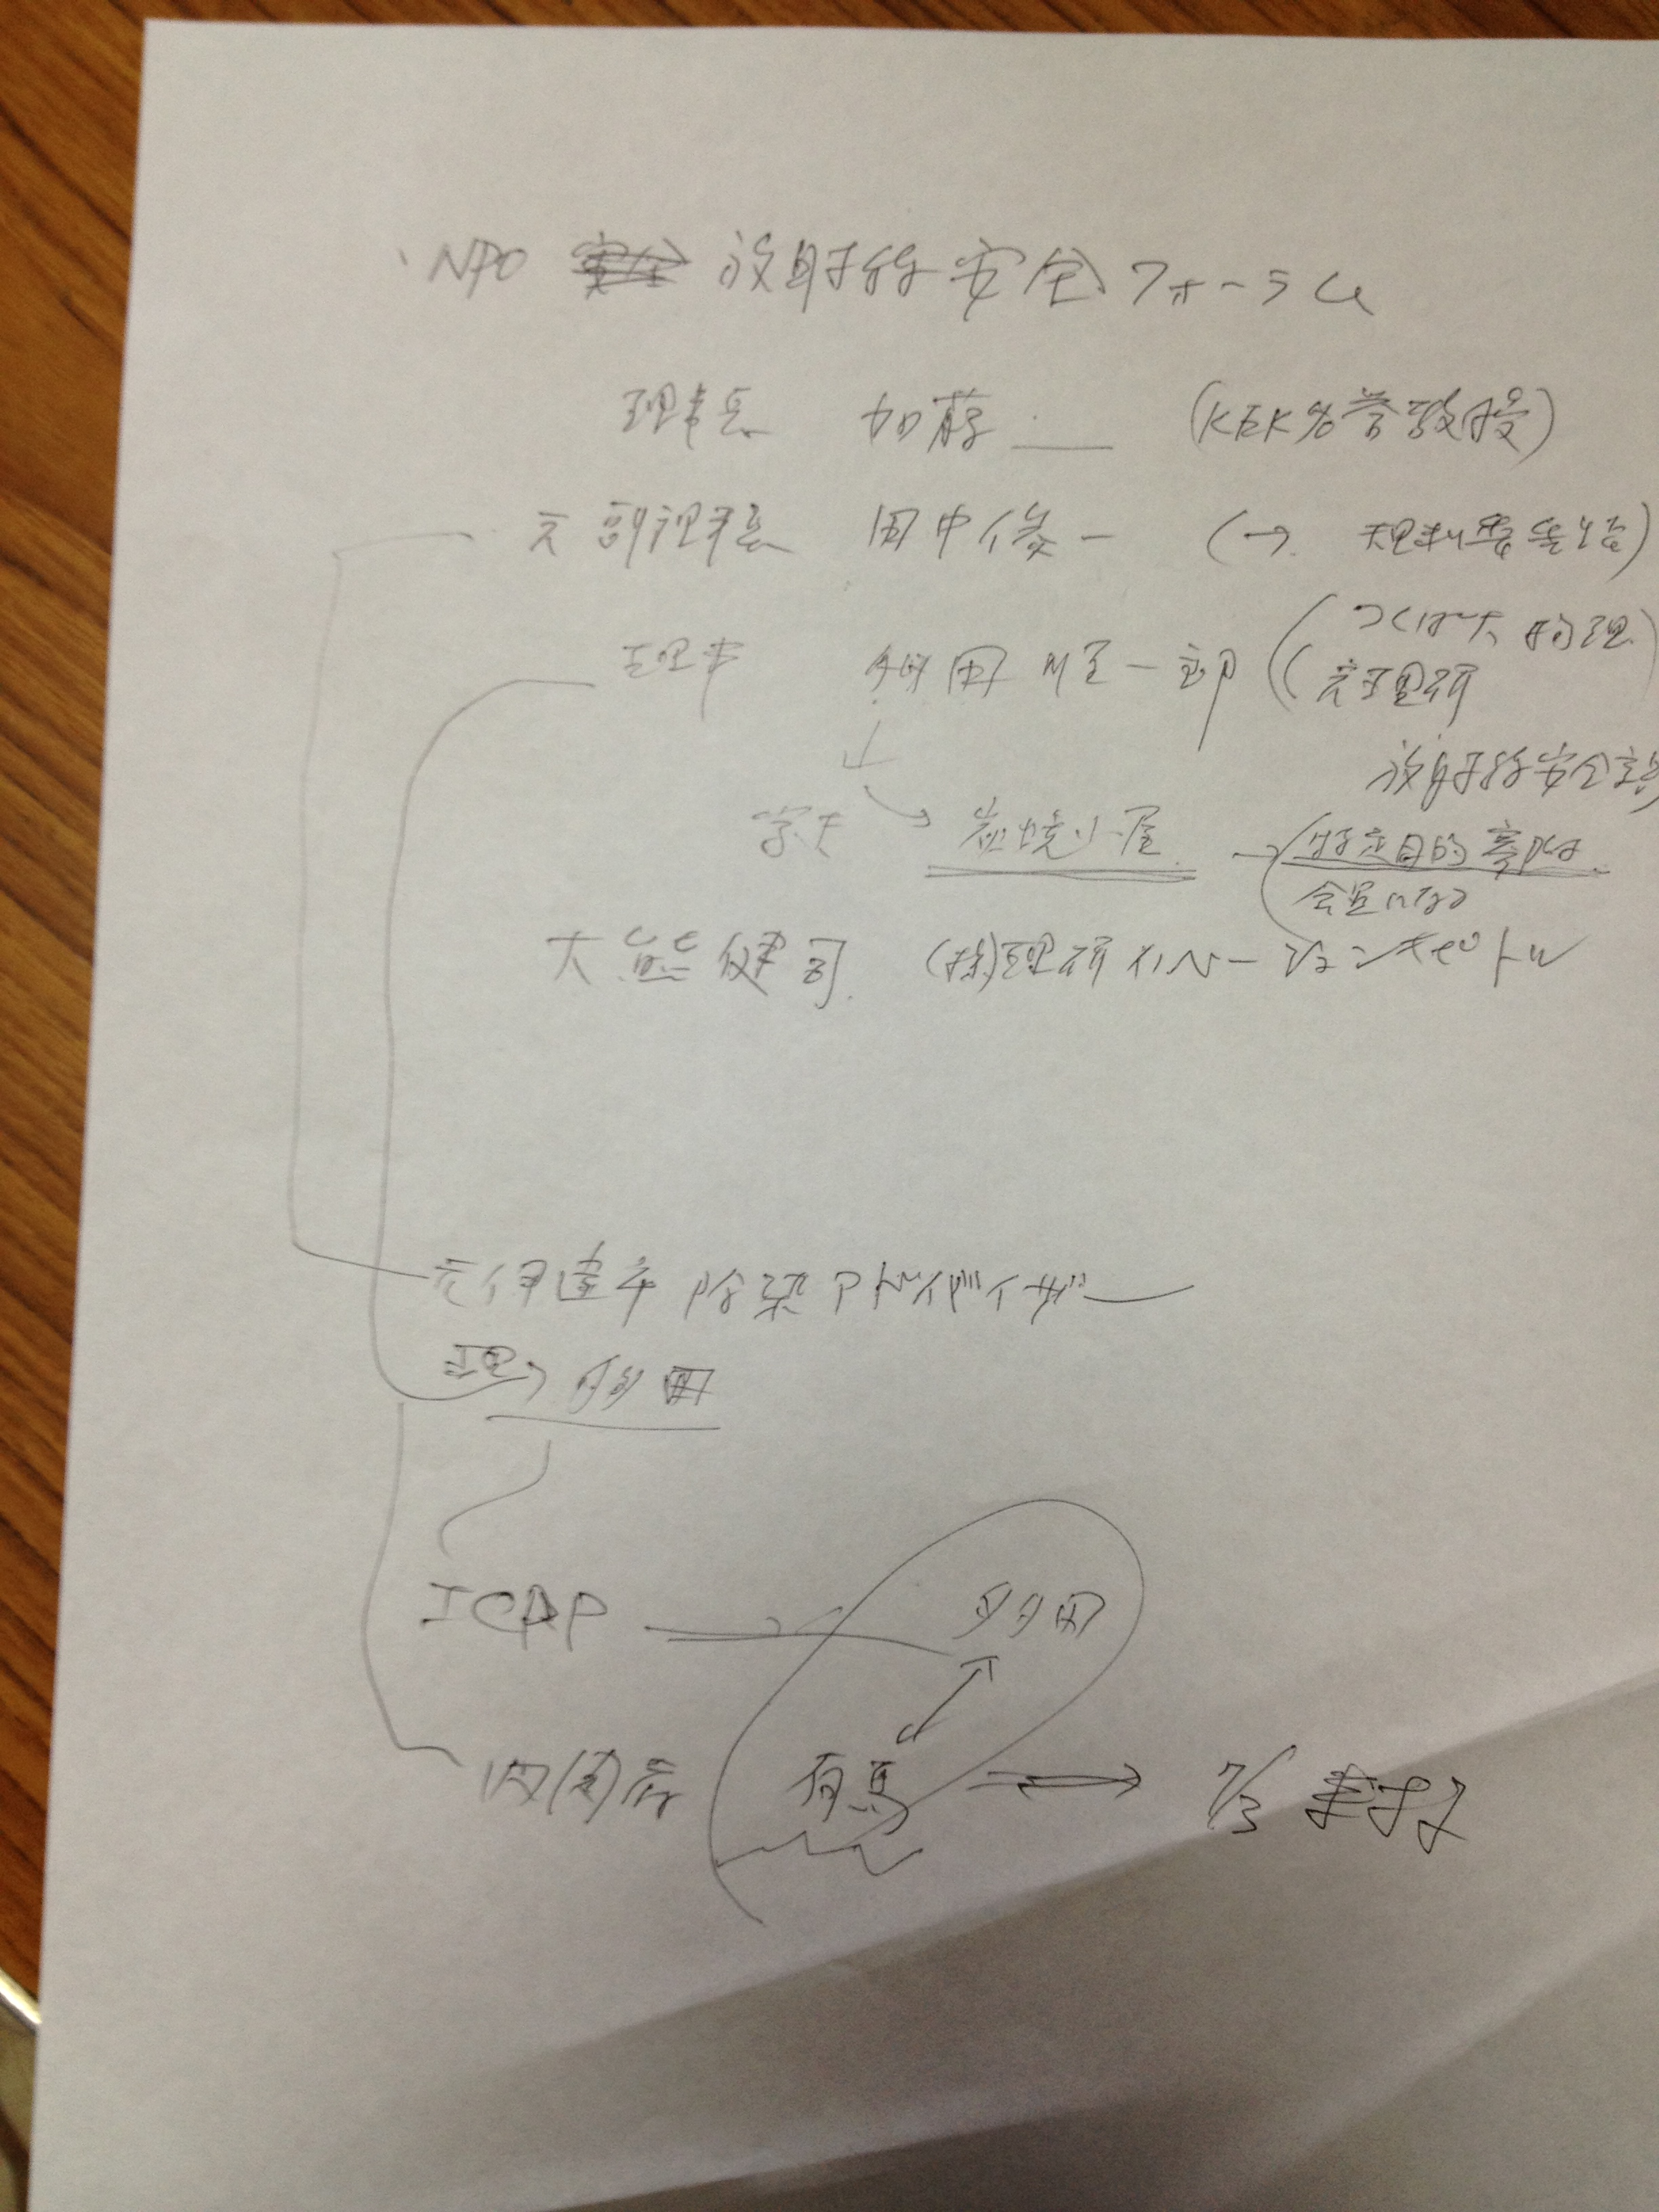 ・NPO 放射線安全フォーラム
理事長 加藤 (KEK名誉教授)
元副理事長 田中俊一 (→ 規制委員会)
理事 多田順一郎 (つくば大 物理
元理研
放射線安全
→ 炭焼小屋 → 特定目的寄附
会員になる
大熊健司 (株)理研イノベーションキャピトル
元伊達市除染アドバイザー
現→ 多田
ICRP → 多田
内閣府 有馬 ⇒ 7/3 来村